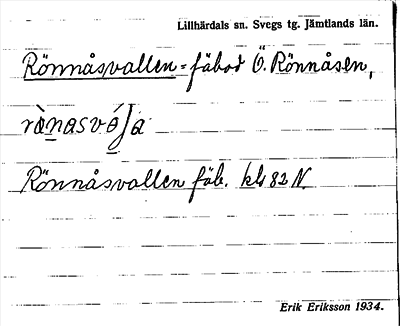 Lillhärdals sn. Svegs tg. Jämtlands län.
Rönnåsvallen = fäbod Ö. Rönnåsen,
Rönnåsvallen fäb. kls 82 N
Erik Eriksson 1934.